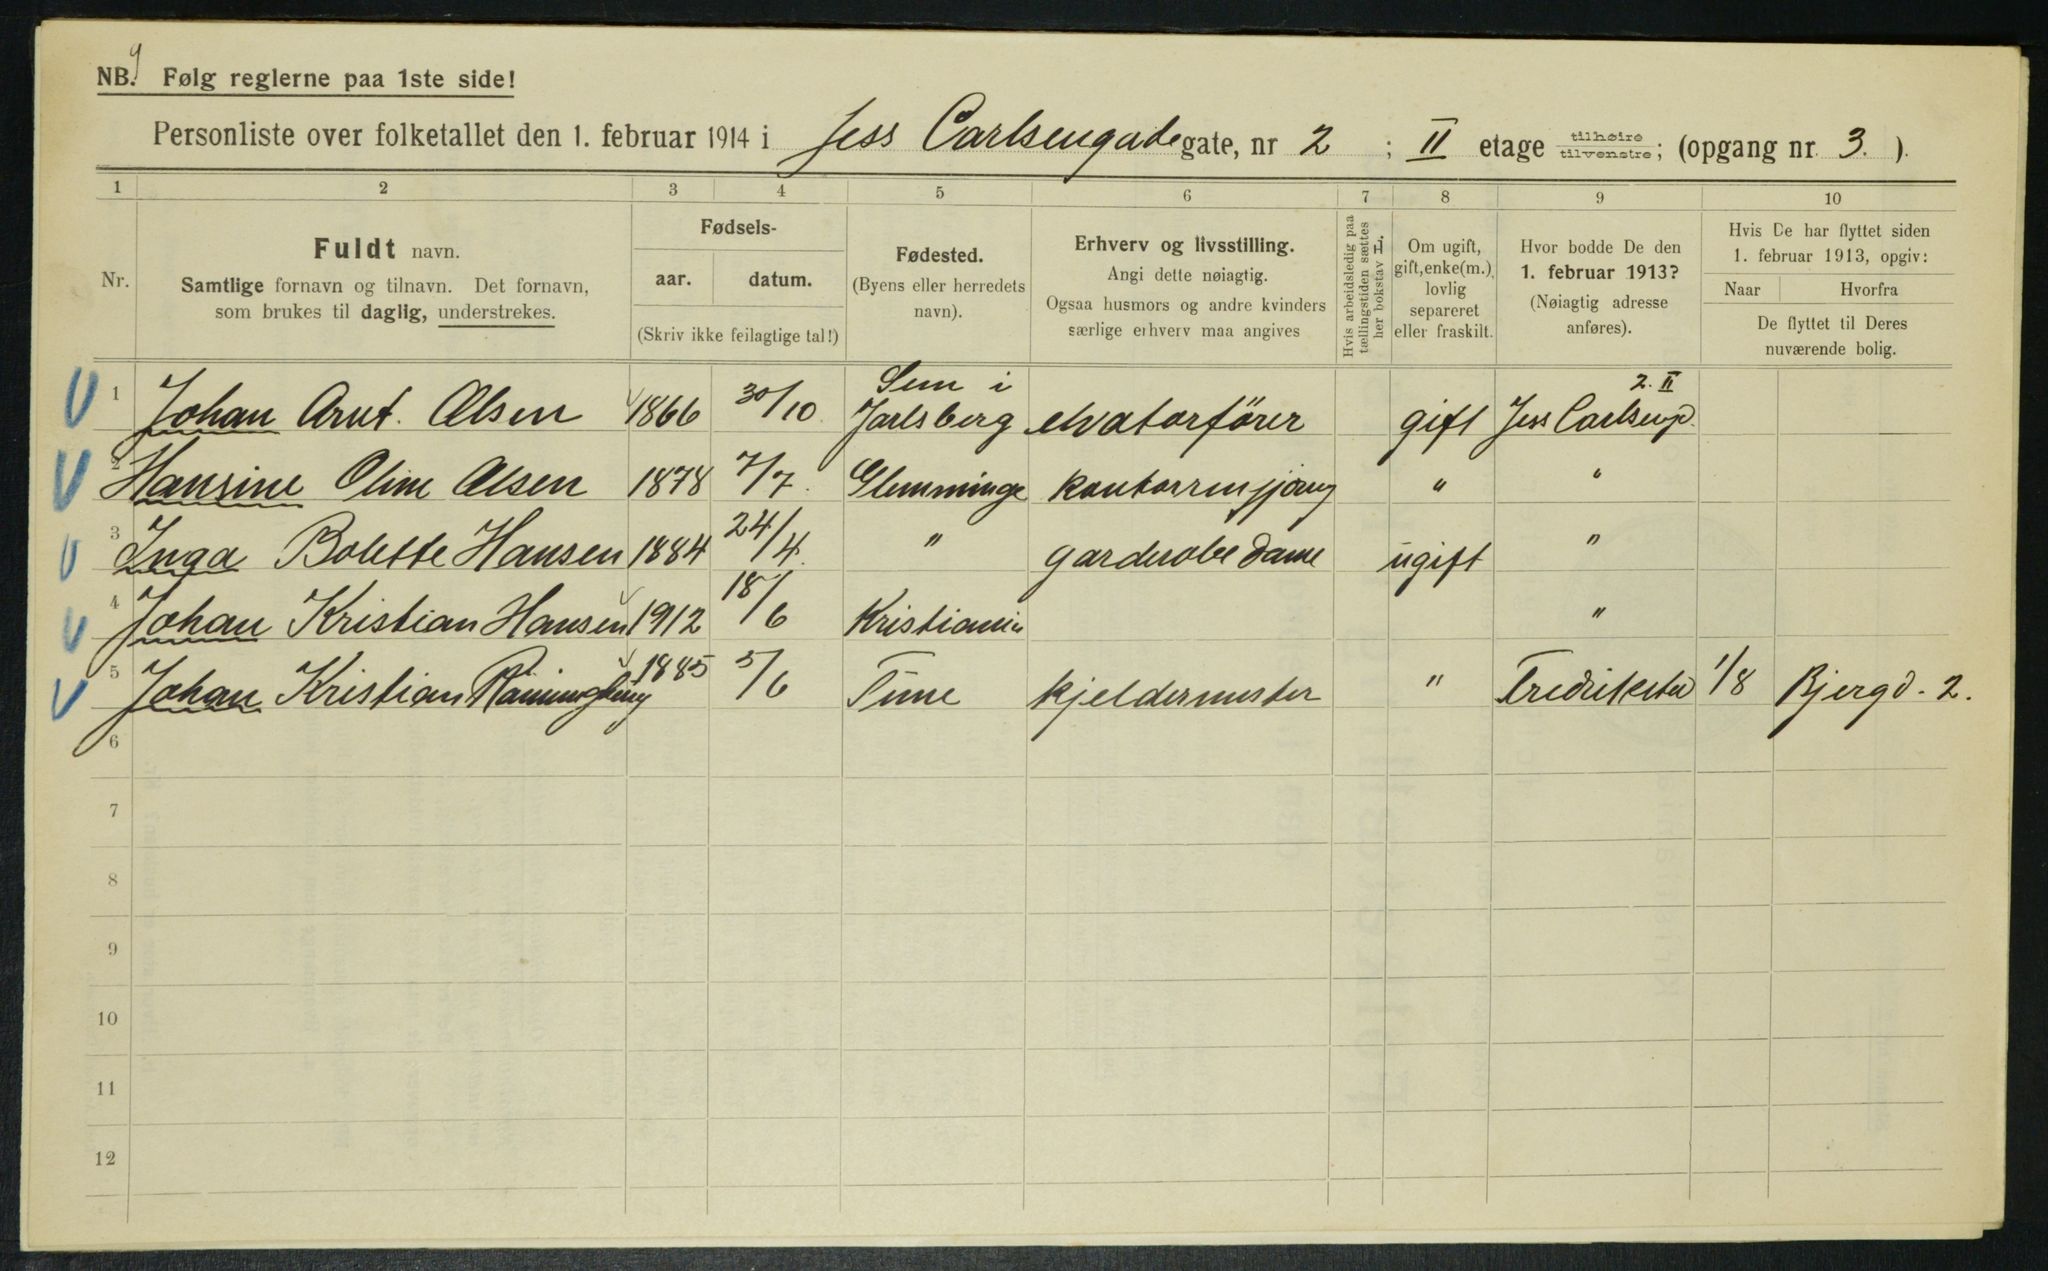 NB. Følg reglerne paa 1ste side!
Personliste over folketallet den 1. februar 1914 i Jess Carlsengade gate, nr 2 ; II etage tilhøire tilvenstre; (opgang nr. 3. ).
1 2 3 4 5 6 7 8 9 10
Nr.
Fuldt navn.
Samtlige fornavn og tilnavn. Det fornavn,
som brukes til daglig, understrekes.
Fødsels-
aar. datum.
(Skriv ikke feilagtige tal!)
Fødested.
(Byens eller herredets
navn).
Erhverv og livsstilling.
Angi dette nøiagtig.
Ogsaa husmors og andre kvinders
særlige erhverv maa angives
Hvis arbeidsledig paa
tællingstiden sættes
her bokstav L.
Om ugift,
gift, enke(m.),
lovlig
separeret
eller fraskilt.
Hvor bodde De den
1. februar 1913?
(Nøiagtig adresse
anføres).
Hvis De har flyttet siden
1. februar 1913, opgiv:
Naar Hvorfra
De flyttet til Deres
nuværende bolig.
1 Johan Arnt. Olsen 1866 30/10 Sem i Jarlsberg elvatorfören gift Jess Carlseng 2. II
2 Hansine Oline Olsen 1878 7/7. Glemminge kontorrengjöring " "
3 Inga Bolette Hansen 1884 24/4. " garderobe dame ugift "
4 Johan Kristian Hansen 1912 18/6 Kristiania "
5 Johan Kristian 1885 5/6 Time kjeldermester " Fredriksstad 1/8 Bjergd. 2.
6
7
8
9
10
11
12